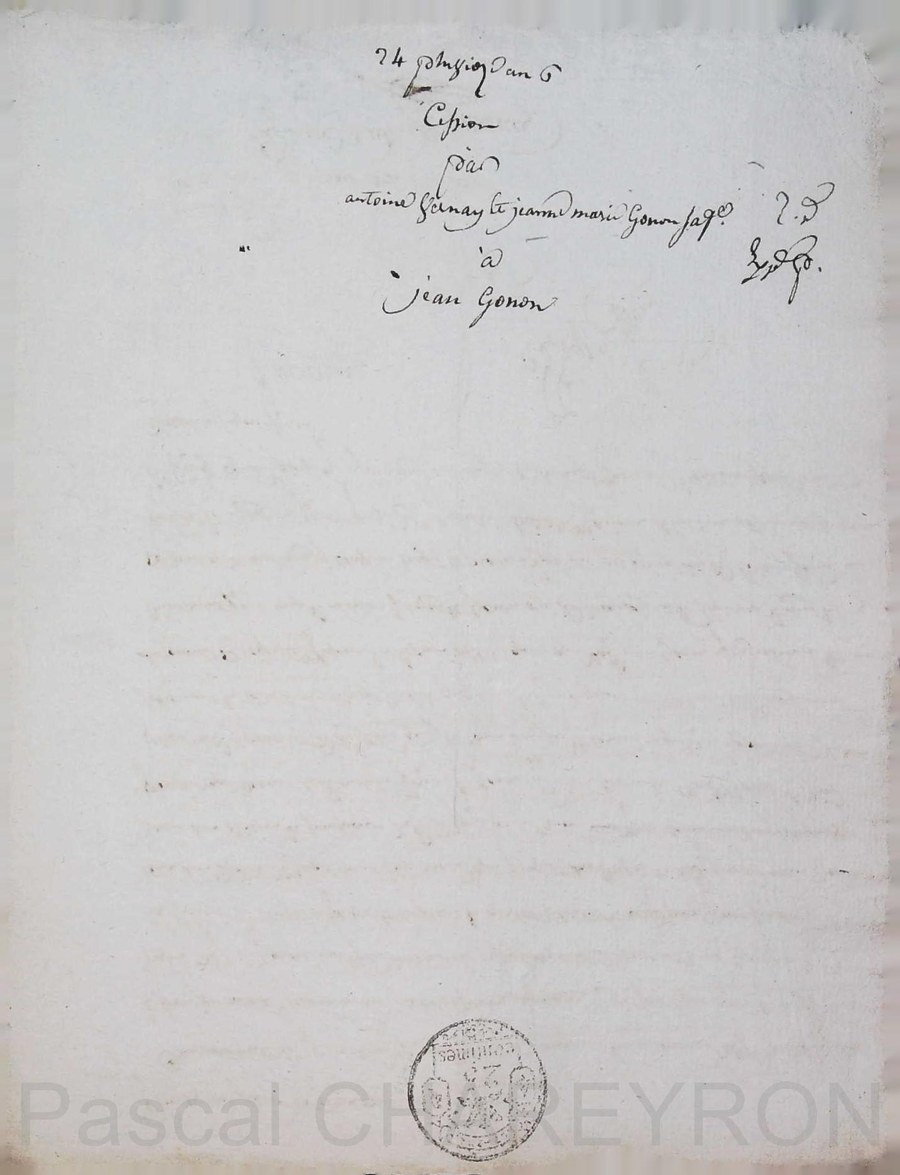 24 pluviôz an 6
Cession
par
antoine Vernay et jeanne marie Gonon sa fe.
à
jean Gonon
centimes
Pascal CHAREYRON